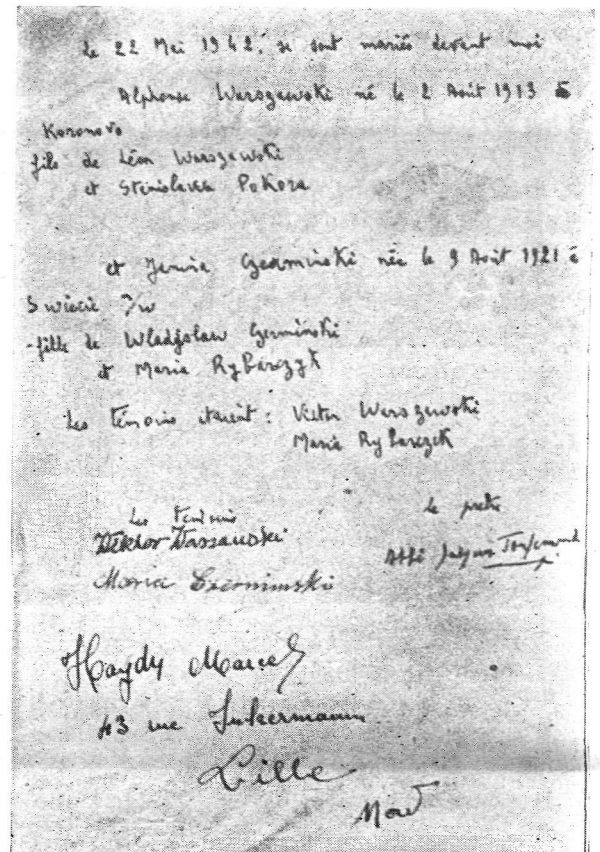 le 22 Mai 1942, se sont mariés devant moi
Alphonse Warszawski né le 2 Août 1913 à
Koronovo
fils de Léon Warszawski
et Stanislawa Pokora
et Janina Czerminski née le 9 Août 1921 à
Swiecie 7/w
fille de Wladyslaw Czerminski
et Maria Rybarczyk
Les témoins étaient : Victor Warszawski
Maria Rybarczyk
Les témoins
Le prêtre
Wiktor Warszawski
Abbé Jacques
Maria Czernimski
Haydy Marcel
43 rue Inkermann
Lille
Nord